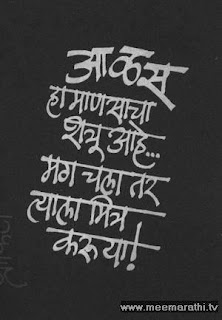 आळस
हा माणसाचा
शत्रू आहे...
मग चला तर
त्याला मित्र
करूया!
www.meemarathi.tv